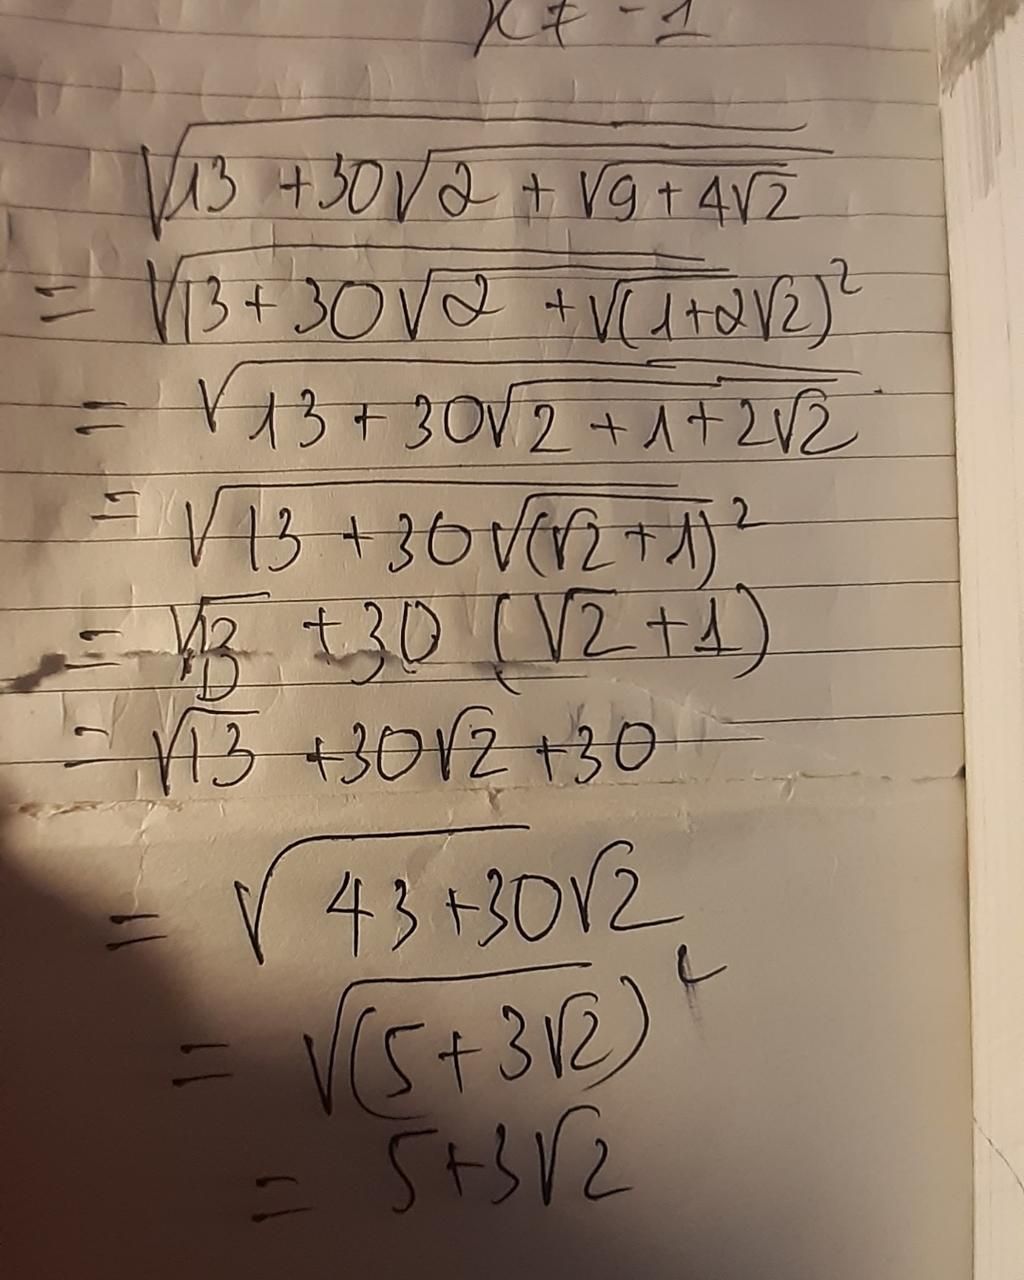 x ≠ -1
√(13 + 30√(2 + √(9 + 4√2)))
= √(13 + 30√(2 + √(1+2√2)²))
= √(13 + 30√(2 + 1 + 2√2))
= √(13 + 30√(√2+1)²)
= √13 + 30 (√2 + 1)
= √13 + 30√2 + 30
= √(43 + 30√2)
= √(5 + 3√2)²
= 5 + 3√2